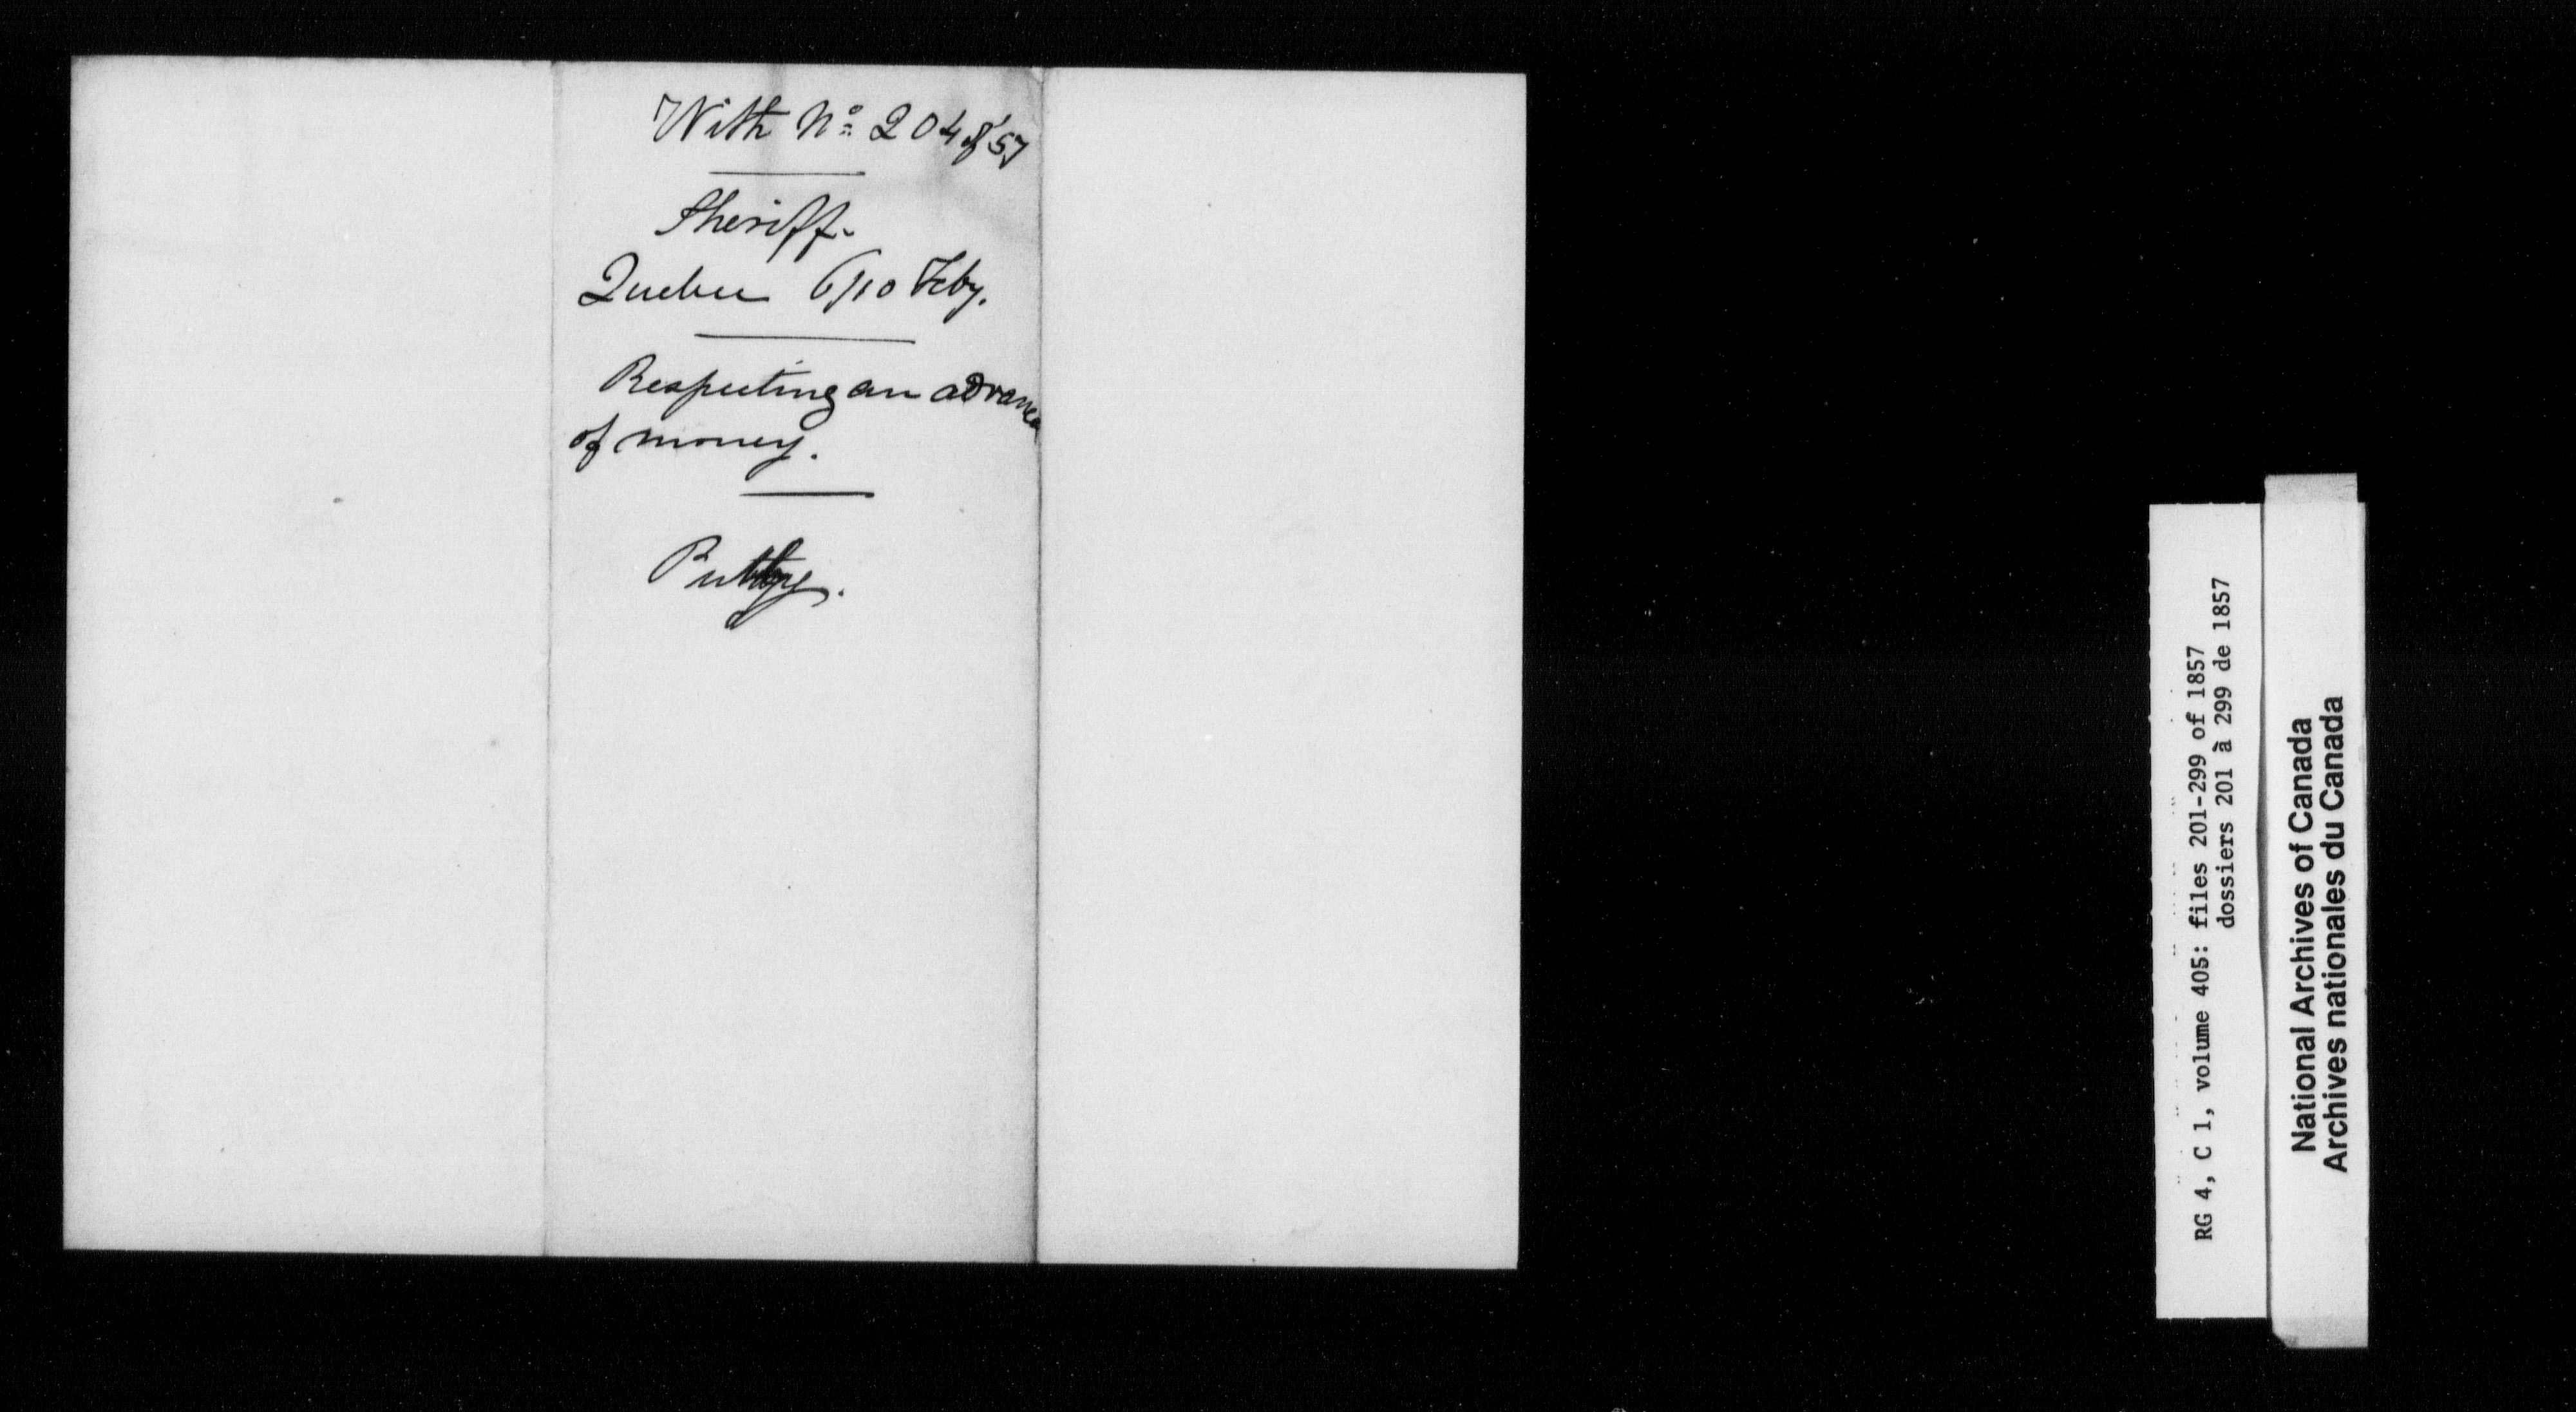 With No. 204 of '57
Sheriff.
Quebec 6/10 Feby.
Respecting an advance
of money.
RG 4, C 1, volume 405: files 201-299 of 1857
dossiers 201 à 299 de 1857
National Archives of Canada
Archives nationales du Canada